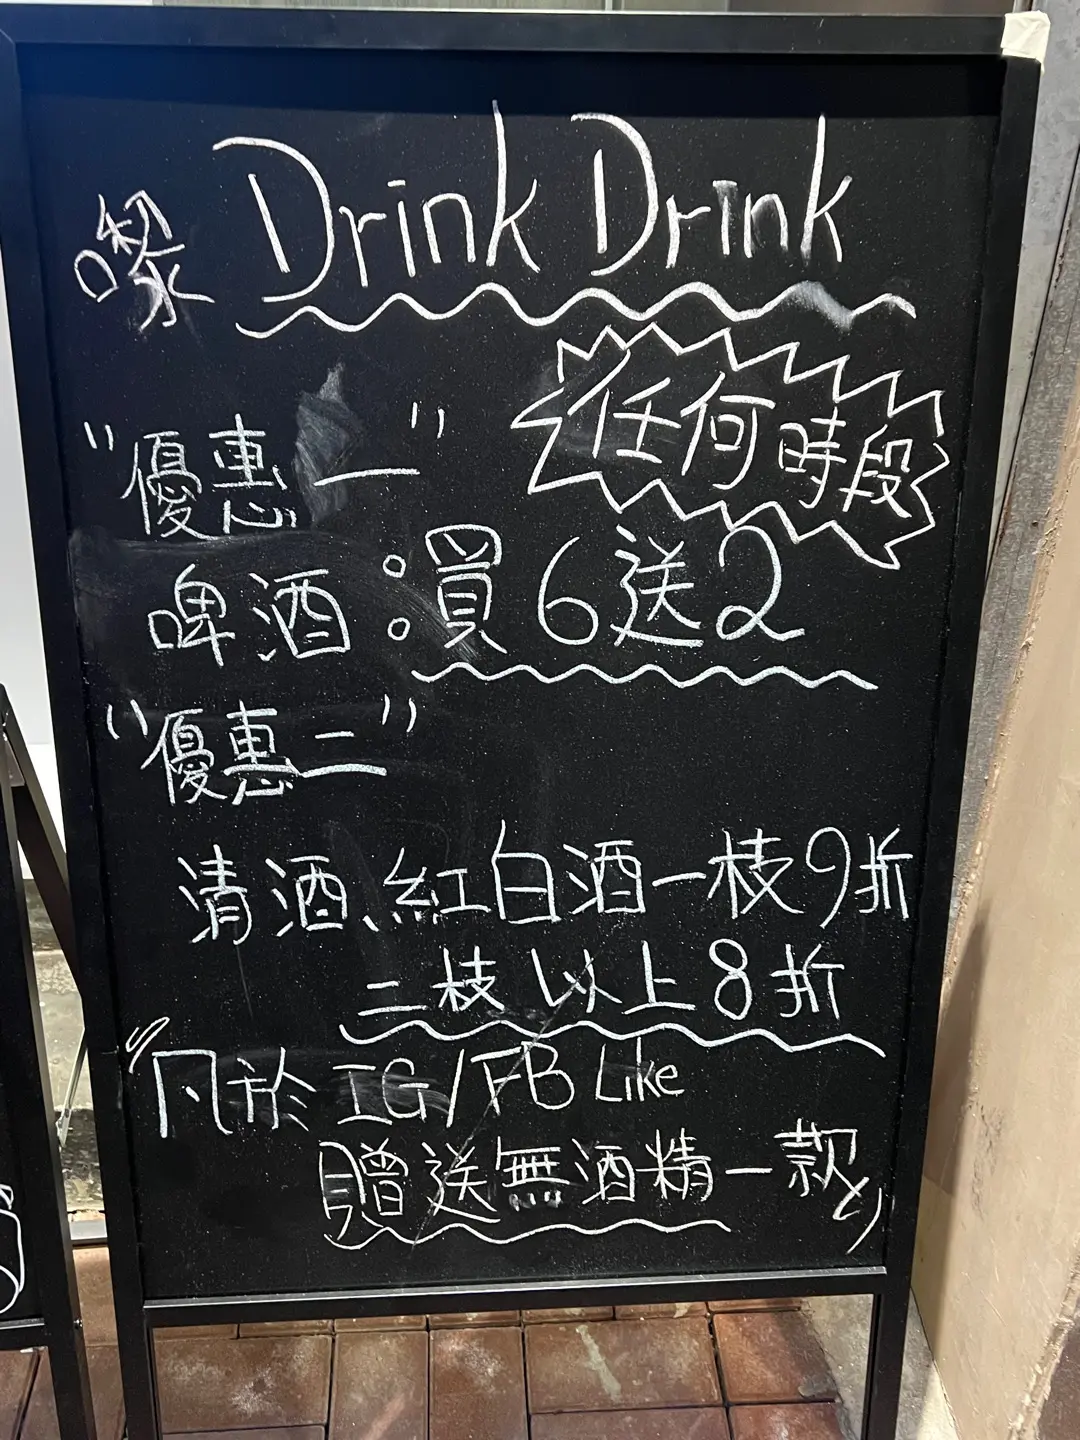 嚟 Drink Drink
任何時段
"優惠一"
啤酒:買6送2
"優惠二"
清酒、紅白酒一枝9折
二枝以上8折
"凡於 IG/FB Like
贈送無酒精一款"